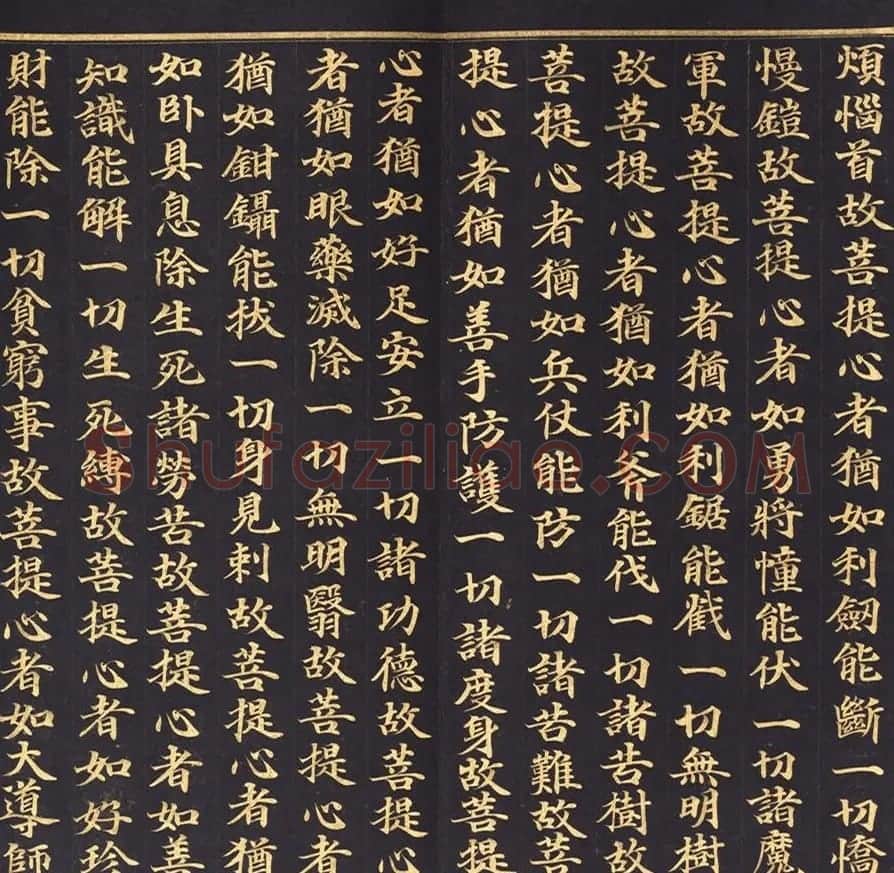 煩惱首故菩提心者猶如利劒能斷一切憍
慢鎧故菩提心者如勇將幢能伏一切諸魔
軍故菩提心者猶如利鋸能截一切無明樹
故菩提心者猶如利斧能伐一切諸苦樹故
菩提心者猶如兵仗能防一切諸苦難故菩
提心者猶如善手防護一切諸度身故菩提
心者猶如好足安立一切諸功德故菩提心
者猶如眼藥滅除一切無明翳故菩提心者
猶如鉗鑷能拔一切身見刺故菩提心者猶
如卧具息除生死諸勞苦故菩提心者如善
知識能解一切生死縛故菩提心者如好珍
財能除一切貧窮事故菩提心者如大導師
Shufaziliao.COM